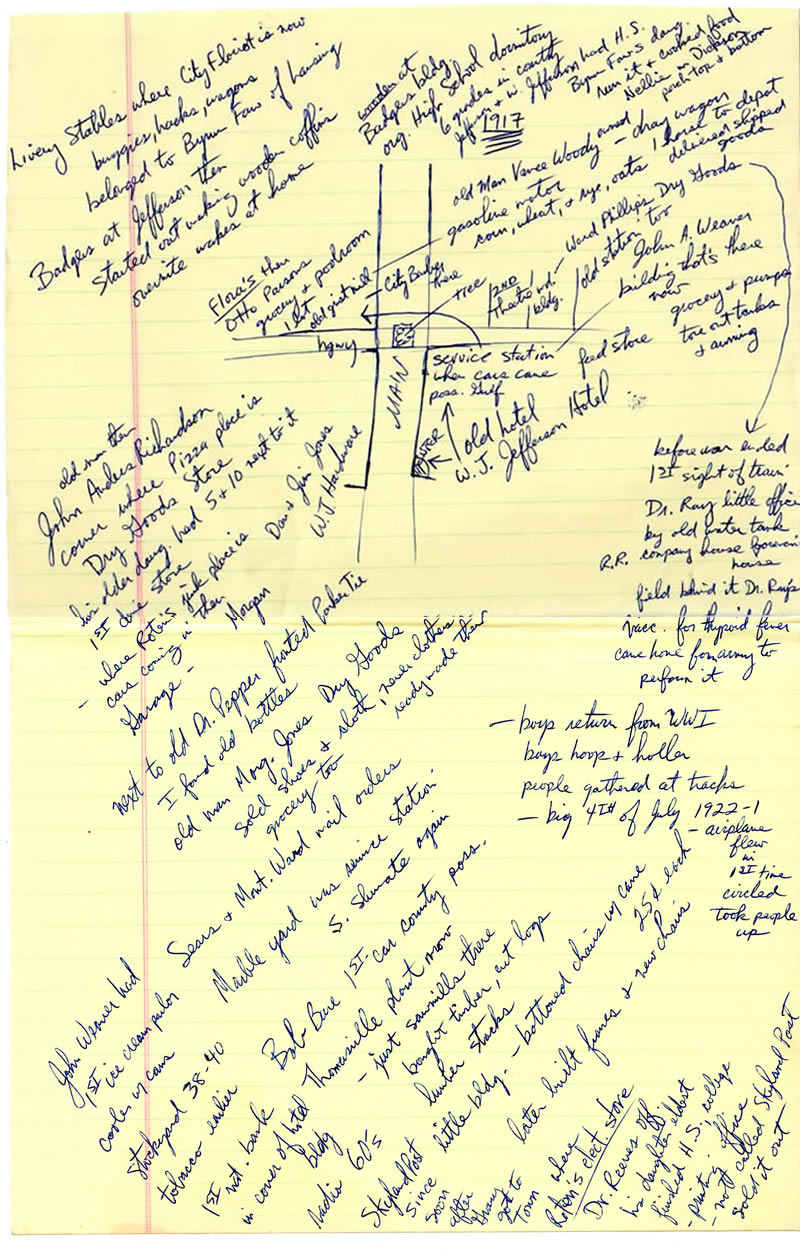 Livery Stables where City Florist is now
buggies, hacks, wagons
belonged to Bynum Faw of housing
Badges at Jefferson then
started out making wooden coffins
overnite wakes at home
wooden at
Badges bldg
org. High School dormitory
6 grades in country
Jeffer. & W. Jefferson had H.S.
1917
Bynum Faw's daug.
run it & cooked food
Nellie m. Dickson
porch top & bottom
old man Vance Woody owned
gasoline motor
corn, wheat, & rye, oats
- dray wagon
1 horse to depot
delivered shipped
goods
Flora's then
Otto Parsons
grocery & poolroom
1 lot
old grist mill
City Barber
there
tree
2ND
Theatre
bldg.
Ward Phillips Dry Goods
old station too
John A. Weaver
building that's there
now
grocery & pumps
tore out tanks
& awning
hgwy
MAIN
service station
when cars came
poss. Gulf
feed store
old hotel
W. J. Jefferson Hotel
old man then
John Anders Richardson
corner where Pizza place is
Dry Goods Store
his older daug. had 5 & 10 next to it
1ST dime store
- where Roten's junk place is
cars coming in then
Garage - Morgan
Dan & Jim Jones
WJ Hardware
before war ended
1ST sight of train
Dr. Ray little office
by old water tank
R.R. company house
house
field behind it Dr. Ray's
vacc. for thypoid fever
came home from army to
perform it
next to old Dr. Pepper
I found old bottles
old man Morg. Jones Dry Goods
sold shoes & cloth, never clothes
ready made then
grocery too
- boys return from WWI
boys hoop & holler
people gathered at tracks
- big 4TH of July 1922-1
- airplane
flew
in
1ST time
circled
took people
up
Sears & Mont. Ward mail orders
Marble yard was service station
S. Shumate again
John Weaver had
1ST ice cream parlor
cooler w/ cans
Bob Bare 1ST car county poss.
Stockyard 38-40
tobacco earlier
Thomasville plant now
- just sawmills there
bought timber, cut logs
lumber stacks
1ST nat. bank
in corner of hotel
bldg
radio 60's
little bldg. - bottomed chairs w/ cane
25¢ each
later built frames & new chair
Skyland Post
since
soon
after
got to
Town
where
Roten's elect. store
Dr. Reeves off
his daughter eldest
finished H.S., college
- printing office
- not called Skyland Post
sold it out